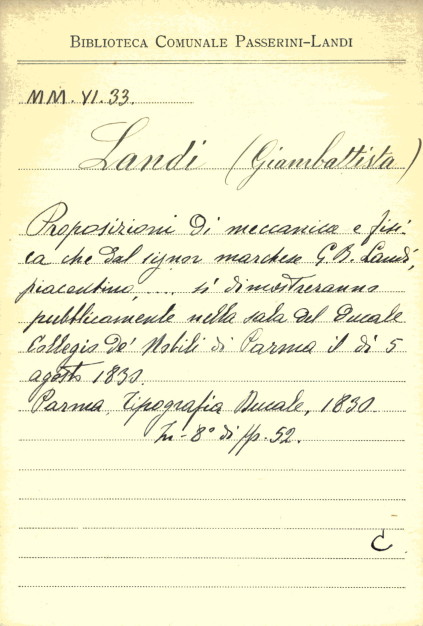 BIBLIOTECA COMUNALE PASSERINI-LANDI
MM. VI. 33.
Landi (Giambattista)
Proposizioni di meccanica e fisi-
ca che dal signor marchese G. B. Landi,
piacentino, .... si dimostreranno
pubblicamente nella sala del Ducale
Collegio de' Nobili di Parma il dì 5
agosto 1830.
Parma, Tipografia Ducale, 1830.
In-8° di pp. 52.
C